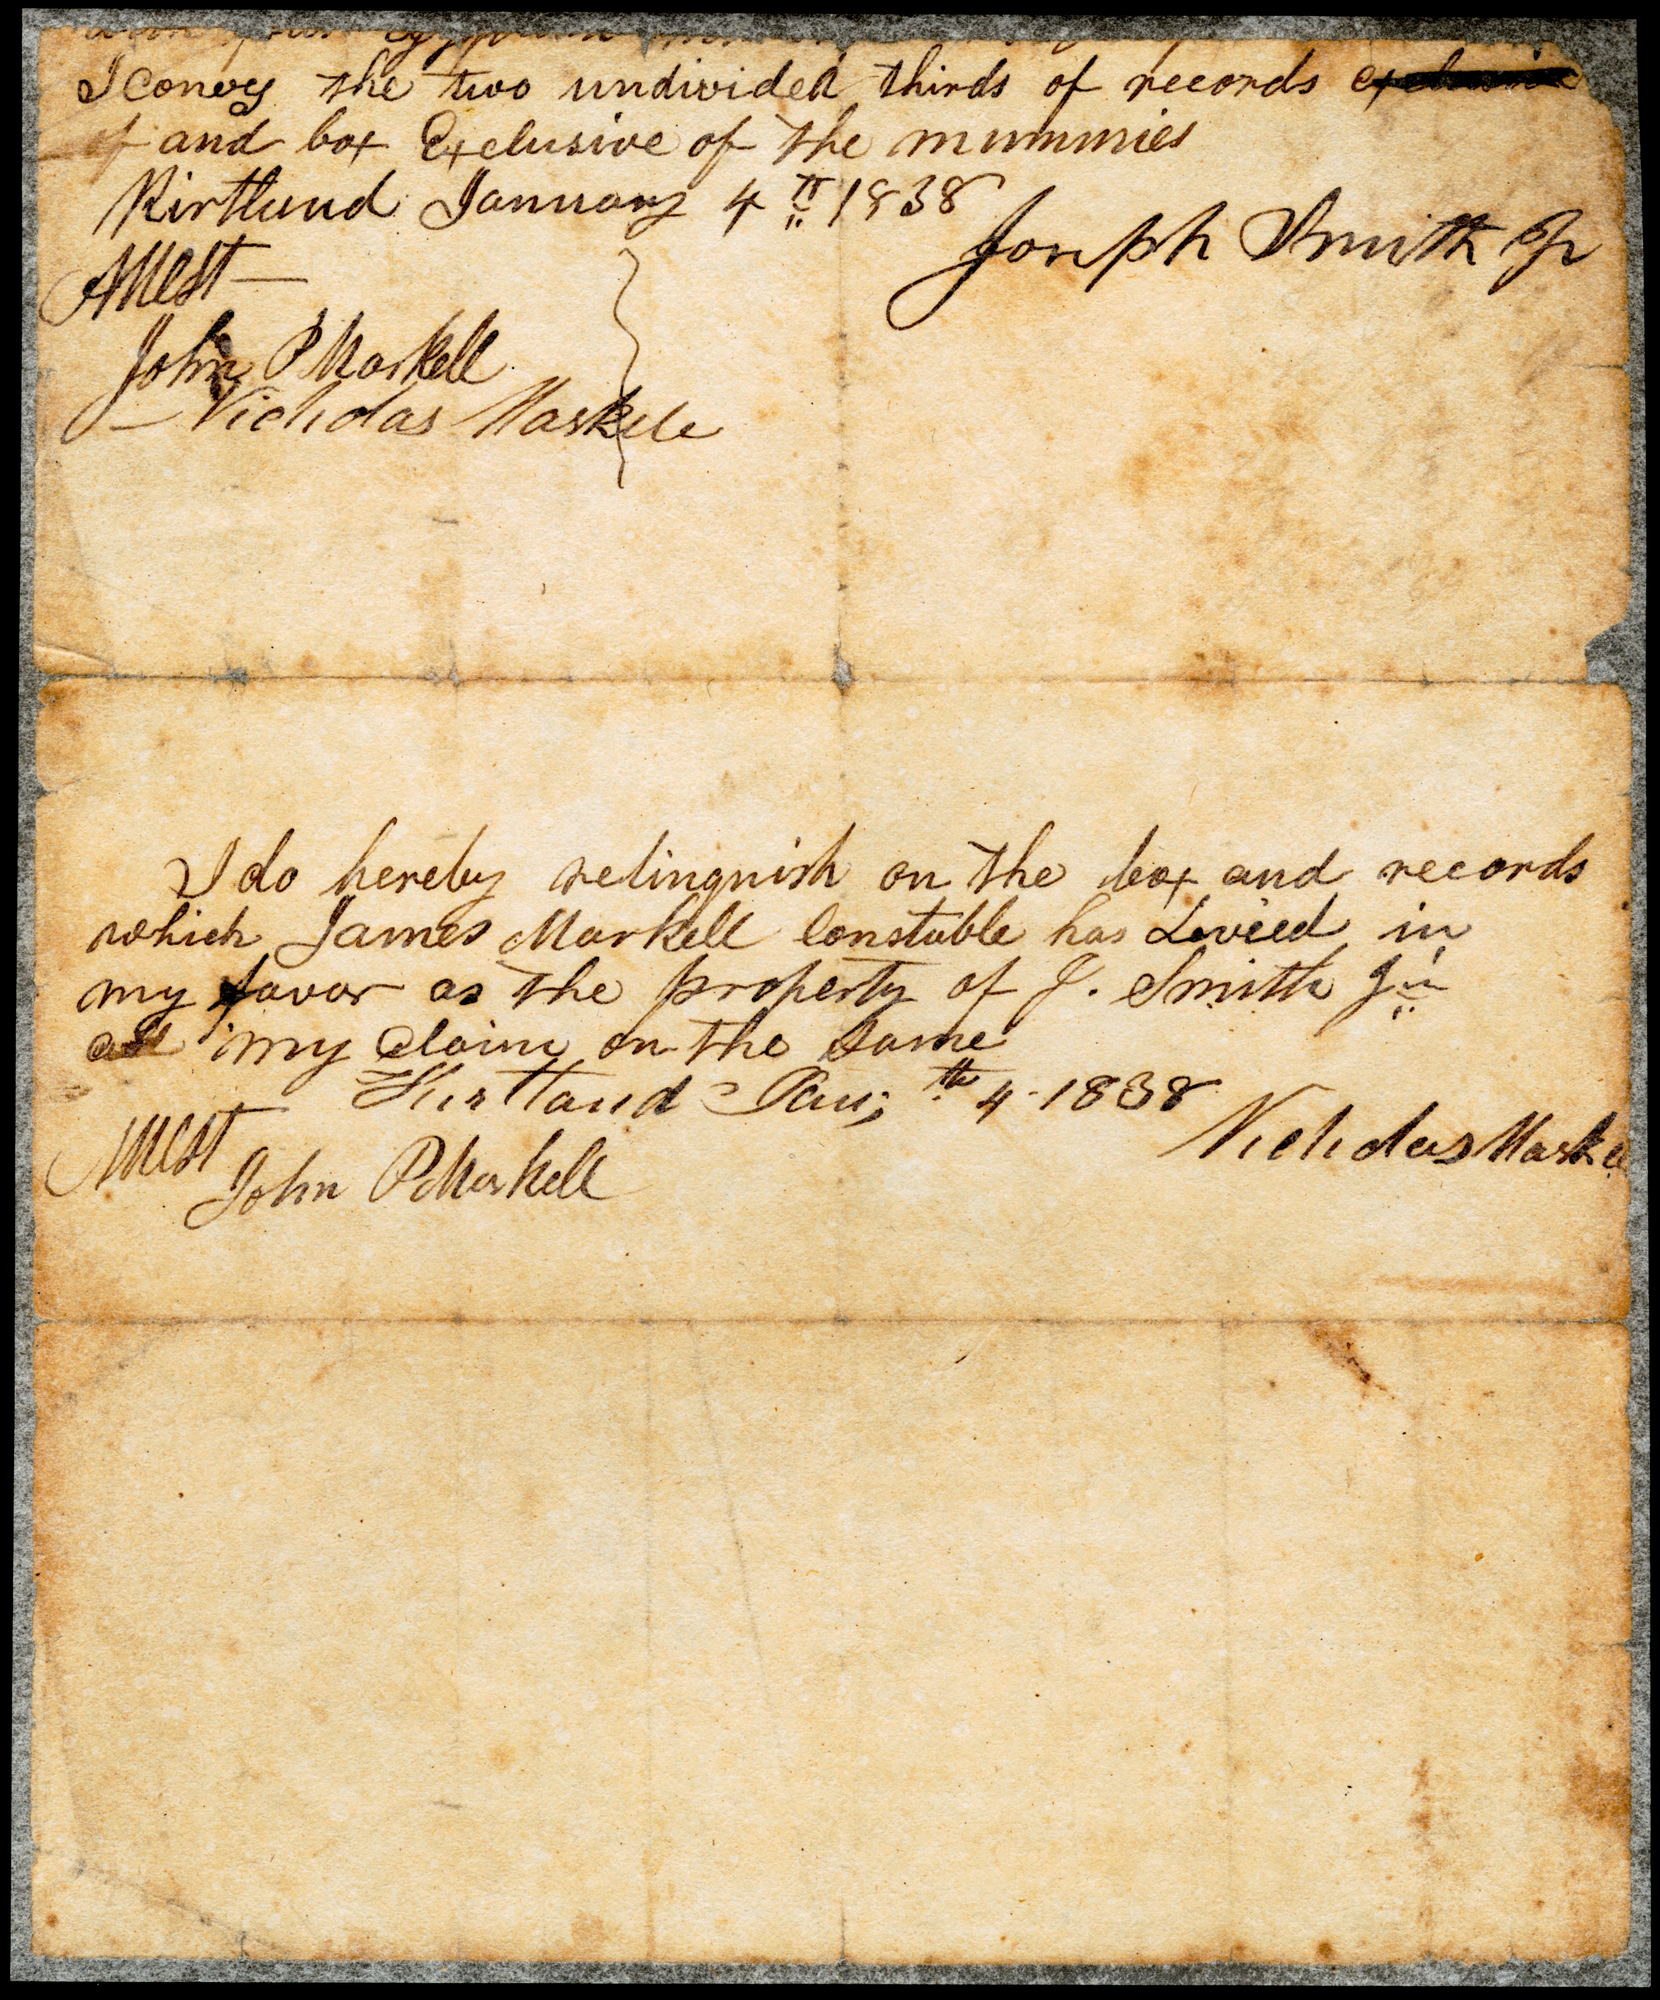 I convey the two undivided thirds of records exclusive
of and box Exclusive of the mummies
Kirtland January 4th 1838
Joseph Smith Jr
Attest
John P Markell
Nicholas Markele
I do hereby relinquish on the box and records
which James Markell Constable has Levied in
my favor as the property of J. Smith Jun
all my claim on the same
Kirtland Jan; th 4 1838
Nicholas Marke
Attest
John P Markell